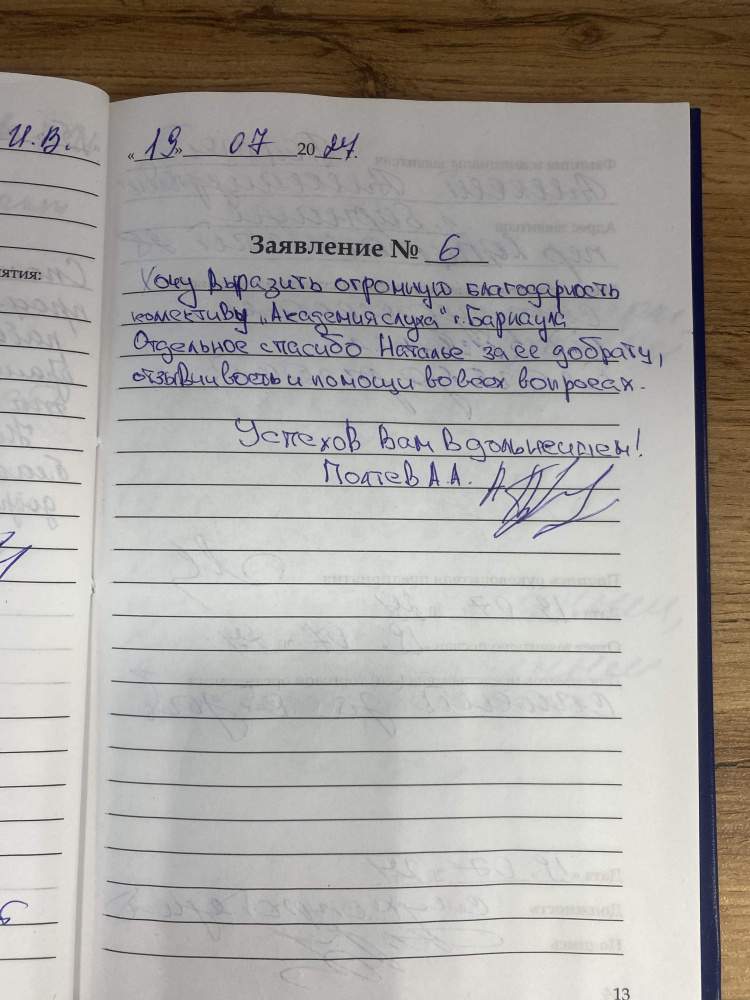 И.В.
«19» 07 2024.
Заявление № 6
ятия:
Хочу выразить огромную благодарность
колективу „Академия слуха" г. Барнаула
Отдельное спасибо Наталье за ее доброту,
отзывчивость и помощи во всех вопросах.
Успехов Вам в дольнейшем!
Полтев А.А.
13